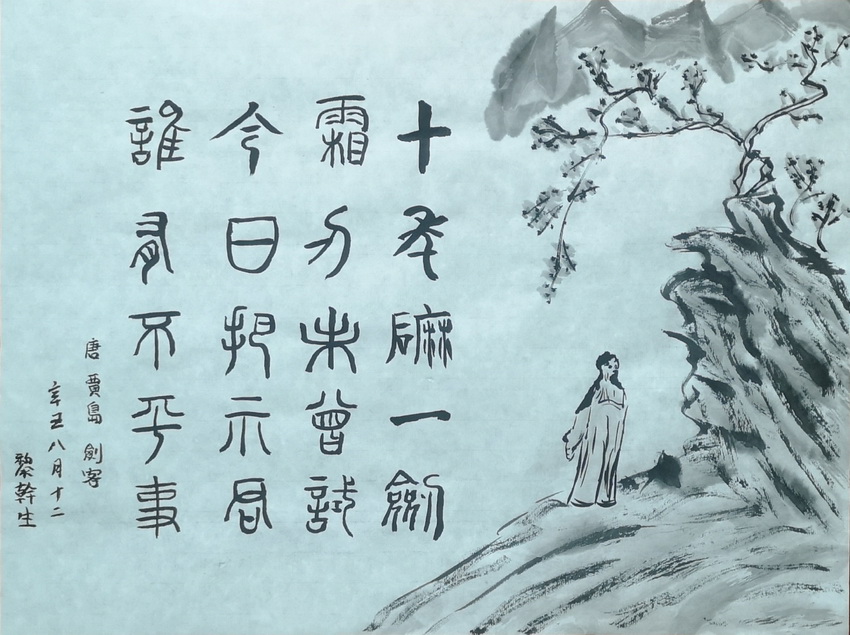 十年磨一劍
霜刃未曾試
今日把示君
誰有不平事
唐 賈島 劍客
辛丑八月十二
黎幹生